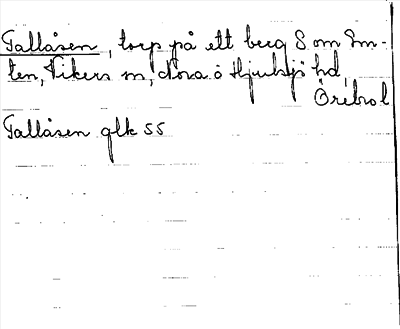 Tallåsen, torp på ett berg S om Im-
ten, Vikers sn, Nora o Hjulsjö hd,
Örebro l
Tallåsen glk 55